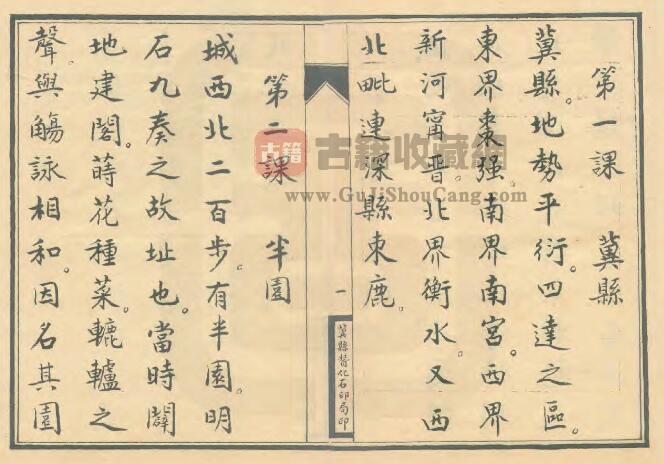 第一課 冀縣
冀縣。地勢平衍。四達之區。
東界棗强。南界南宮。西界
新河甯晋。北界衡水。又西
北毗連深縣東鹿。
一
冀縣贊化石印局印
第二課 半園
城西北二百步。有半園。明
石九奏之故址也。當時闢
地建閣。蒔花種菜。轆轤之
聲與觴詠相和。因名其園
古籍
古籍收藏網
www.GuJiShouCang.com